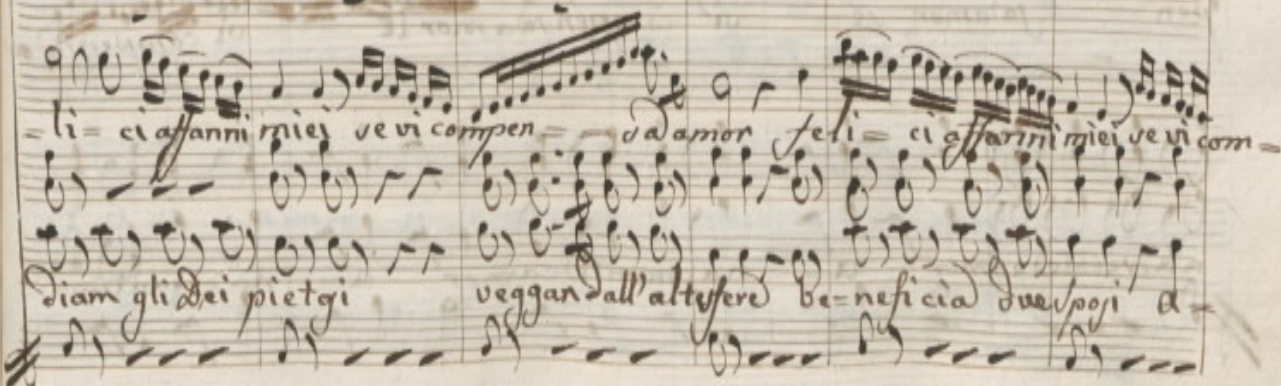 =li= ci affanni miei se vi compen= - sa amor feli= ci affanni miei se vi com=
diam gli Dei pietosi veggan dall'alte sfere be=neficia due sposi a=